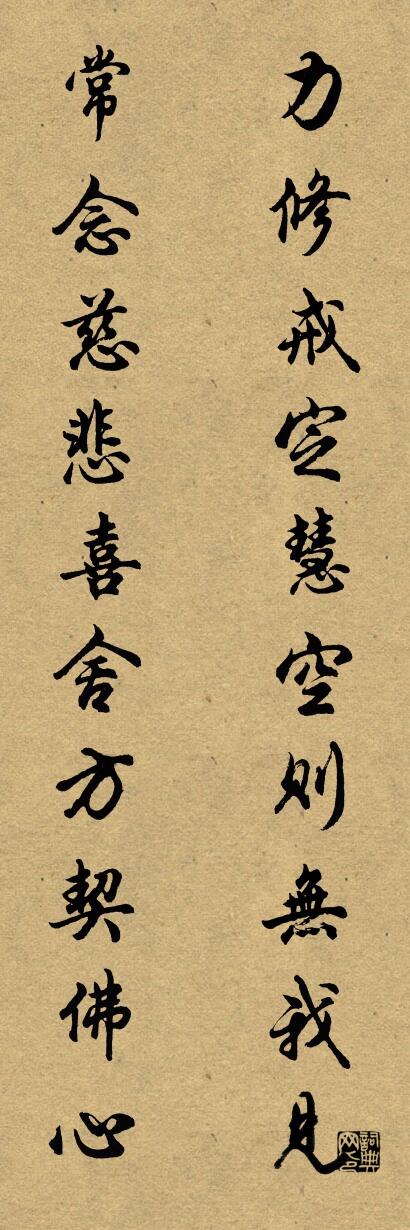 力修戒定慧空則無我見
常念慈悲喜舍方契佛心
詞典網